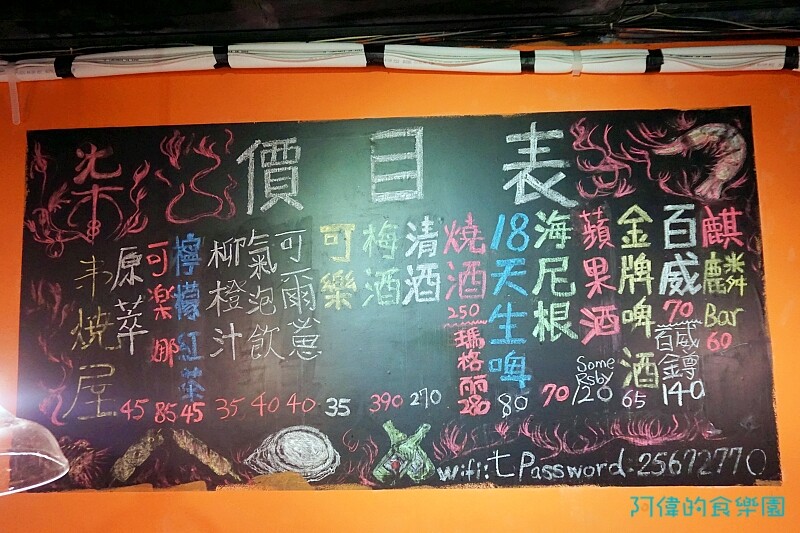 價目表
麒麟Bar 60
百威 70
百威金鐏 140
金牌啤酒 65
蘋果酒 Somersby 120
海尼根 70
18天生啤 80
燒酒 250
瑪格丽 280
清酒 270
梅酒 390
可樂 35
可爾蓖 40
氣泡飲 40
柳橙汁 35
檸檬紅茶 45
可樂娜 85
原萃 45
柒
串燒屋
wifi:七 Password:25672770
阿偉的食樂園